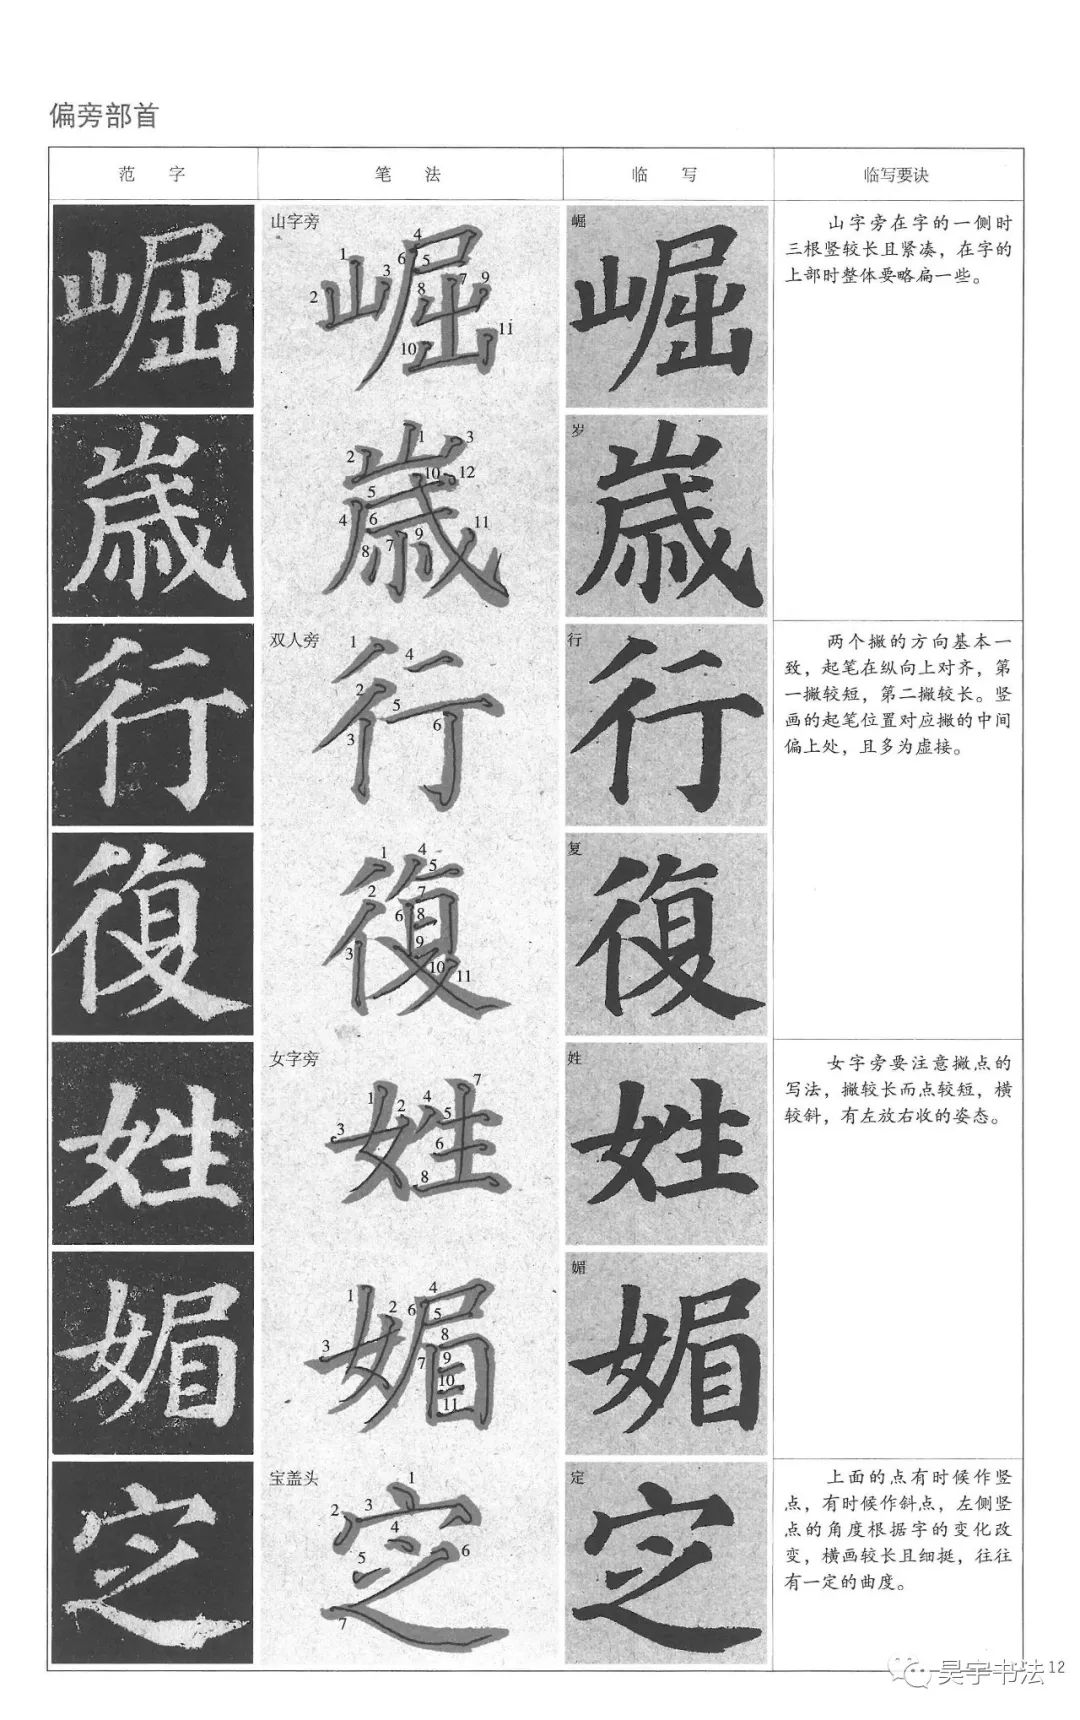 偏旁部首
范 字
笔 法
临 写
临写要诀
崛
山字旁
4
1
6
5
3
7
9
2
8
11
10
崛
崛
山字旁在字的一侧时
三根竖较长且紧凑，在字的
上部时整体要略扁一些。
歳
1
3
2
10
12
5
4
6
11
9
7
8
歳
岁
歳
行
双人旁
1
4
2
5
6
3
行
行
行
两个撇的方向基本一
致，起笔在纵向上对齐，第
一撇较短，第二撇较长。竖
画的起笔位置对应撇的中间
偏上处，且多为虚接。
復
1
4
5
2
7
6
8
9
3
10
11
復
复
復
姓
女字旁
7
1
2
4
5
3
6
8
姓
姓
姓
女字旁要注意撇点的
写法，撇较长而点较短，横
较斜，有左放右收的姿态。
媚
1
4
2
6
5
8
3
7
9
10
11
媚
媚
媚
定
宝盖头
1
3
2
4
6
5
7
定
定
定
上面的点有时候作竖
点，有时候作斜点，左侧竖
点的角度根据字的变化改
变，横画较长且细挺，往往
有一定的曲度。
昊宇书法
12